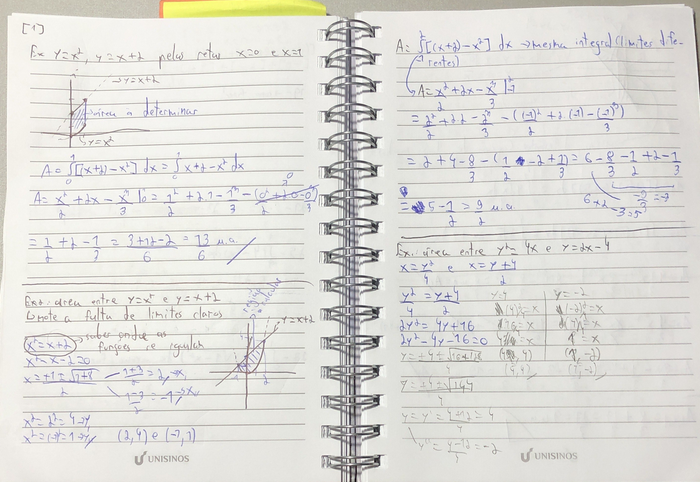 [1]
Ex: y=x², y=x+2 pelas retas x=0 e x=1
→y=x+2
área a determinar
y=x²
A=∫₀¹[(x+2)-x²] dx = ∫₀¹ x+2-x² dx
A= x²/2 + 2x - x³/3 |₀¹ = 1²/2 + 2.1 - 1³/3 - (0²/2 + 2.0 - 0³/3)
= 1/2 + 2 - 1/3 = (3+12-2)/6 = 13/6 u.a
Ex2: área entre y=x² e y=x+2
↳ note a falta de limites claros
x²=x+2 → saber onde as
funções se igualam
x²-x-2=0
x = (+1±√(1+8))/2
(1+3)/2 = 2 →x₁
(1-3)/2 = -1 →x₂
y=x+2
-1 2
x²=2²=4→y
x²=(-1)²=1→y
(2,4) e (-1,1)
UNISINOS
A=∫₋₁²[(x+2)-x²] dx → mesma integral (limites dife-
rentes)
A= x²/2 + 2x - x³/3 |₋₁²
= 2²/2 + 2.2 - 2³/3 - ((-1)²/2 + 2(-1) - (-1)³/3)
= 2+4-8/3-(1/2-2+1/3) = 6-8/3-1/2+2-1/3
= 5-1/2 = 9/2 u.a
6+2
-9/3=-3
-3=5
Ex: área entre y²=4x e y=2x-4
x=y²/4 e x=(y+4)/2
y²/4 = (y+4)/2
2y²=4y+16
2y²-4y-16=0
y=(+4±√(16+128))/4
y=(+4±√144)/4
y=y'=(4+12)/4=4
y''=(4-12)/4=-2
y=4
(4)²=x
16=x
4=x
(4,4)
y=-2
(-2)²=x
1=x
(1,-2)
UNISINOS